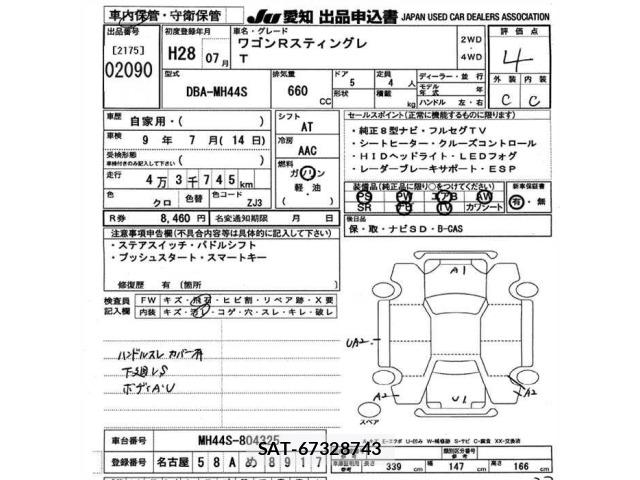 車内保管・守衛保管
JU 愛知 出品申込書 JAPAN USED CAR DEALERS ASSOCIATION
出品番号
[2175]
02090
初度登録年月
H28 07月
車名・グレード
ワゴンRスティングレ
T
2WD
・
4WD
評価点
4
型式
DBA-MH44S
排気量
660 CC
ドア
5
定員
4 人
形状
積載
kg
ディーラー・並行
モデル年度 年
ハンドル 左・右
外装 内装
C C
車歴
自家用・( )
車検
9 年 7 月 (14 日)
受検形態
車検付きのみ記入して下さい
( )
走行
4 万 3 千 7 4 5 km
色
クロ
色替
色コード
ZJ3
シフト
AT
冷房
AAC
燃料
ガソリン
軽・油
( )
セールスポイント(正常に機能するものに限ります)
・純正8型ナビ・フルセグTV
・シートヒーター・クルーズコントロール
・HIDヘッドライト・LEDフォグ
・レーダーブレーキサポート・ESP
装備品(純正品に限り○をつけてください)
PS PW エアB AW
SR TV カワシート
新車保証書
有・無
R券 8,460 円 名変通知期限 月 日
後日品
保・取・ナビSD・B-CAS
注意事項申告欄(不具合内容等は具体的に記入して下さい)
・ステアスイッチ・パドルシフト
・プッシュスタート・スマートキー
修復歴 有(箇所 )
検査員
記入欄
FW キズ・飛石・ヒビ割・リペア跡・X要
内装 キズ・汚レ・コゲ・穴・スレ・キレ・破レ
ハンドルスレ カバー有
下廻りS
ボディA・U
A1
UA2
A2
U1
A2
スペア
車台番号
MH44S-804325
SAT-67328743
登録番号
名古屋 58A め 8917
長さ 339 cm 幅 147 cm 高さ 166 cm